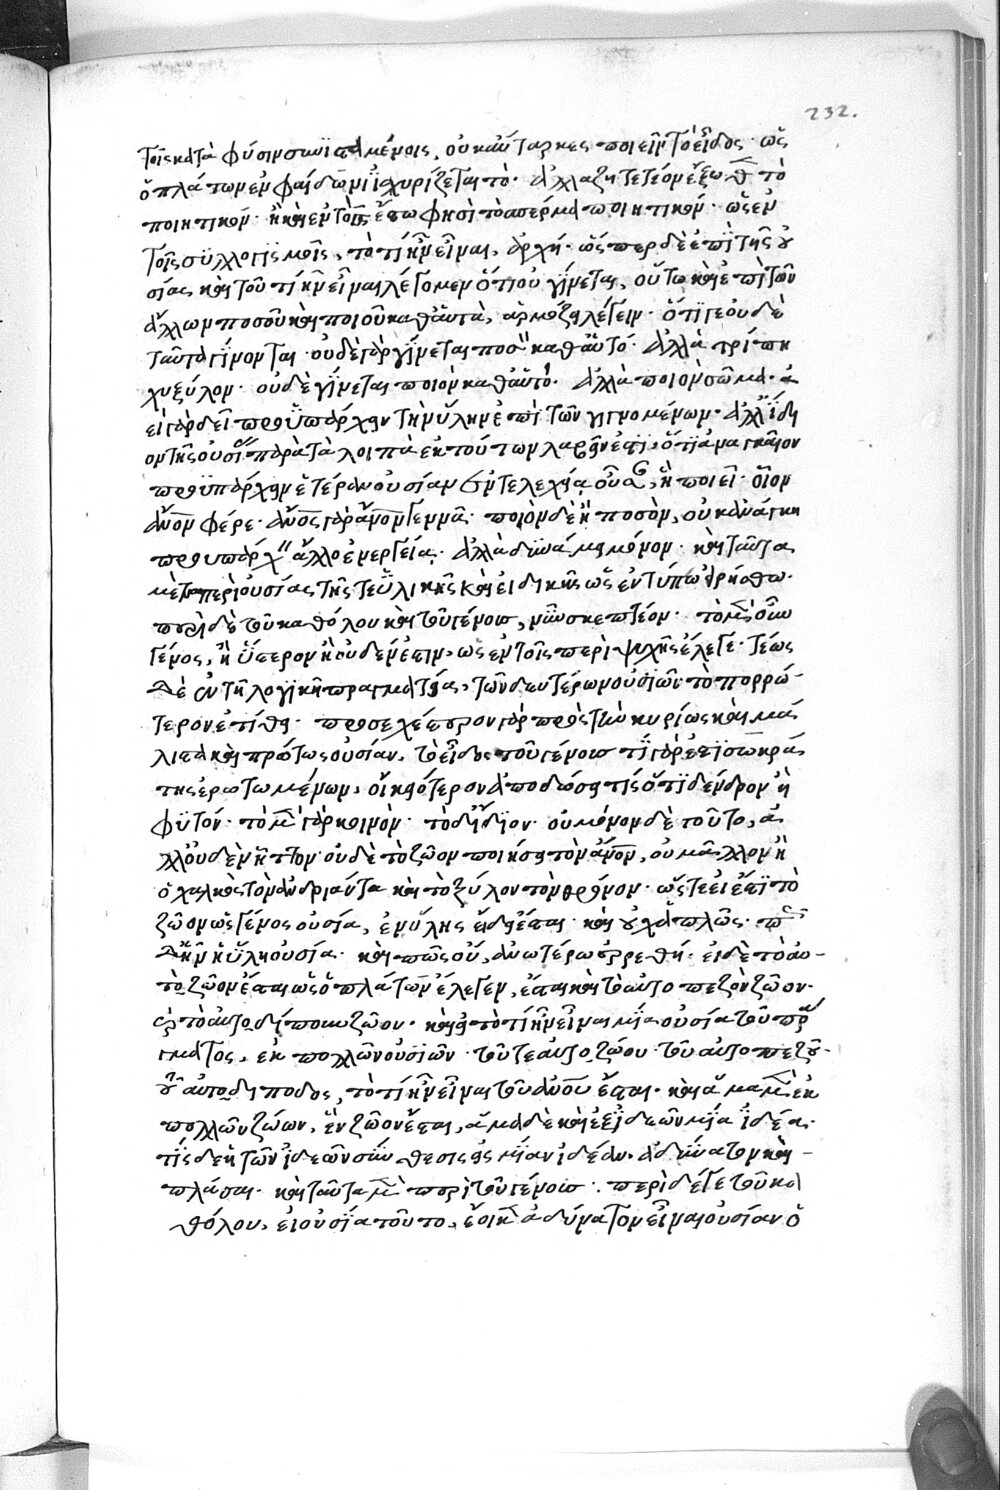 232.
τοῖς κατὰ φύσιν συνϊσταμένοις, οὐκ αὔταρκες ποιεῖν τὸ εἶδος· ὡς
ὁ πλάτων ἐν φαίδωνι ἰσχυρίζεται τό· ἀλλὰ ζητετέον ἔξωθ τὸ
ποιητικόν· ἢ καὶ ἐν τοῖς ἔσω φησὶ τὸ σπέρμα ποιητικόν· ὡς ἐν
τοῖς συλλογισμοῖς, τὸ τί ἦν εἶναι, ἀρχή· ὥσπερ δὲ ἐπὶ τῆς οὐ
σίας καὶ τοῦ τί ἦν εἶναι λέγομεν ὅτι οὐ γίνεται, οὕτω καὶ ἐπὶ τῶν
ἄλλων ποσοῦ καὶ ποιοῦ καθ' αὑτὰ, ἁρμόζει λέγειν· ὅτί γε οὐδὲ
ταῦτα γίνονται· οὐδὲ γὰρ γίνεται ποσὸν καθ' αὑτό· ἀλλὰ τρίπη
χυ ξύλον· οὐδὲ γίνεται ποιὸν καθ' αὑτό· ἀλλὰ ποιὸν σῶμα· ἀ
εὶ γὰρ δεῖ προϋπάρχειν τὴν ὕλην ἐπὶ τῶν γινομένων· ἀλλ' ἴδι
ον τῆς οὐσί παρὰ τὰ λοιπὰ ἐκ τούτων λαβεῖν ἐστι, ὅτι ἀναγκαῖον
προϋπάρχειν ἑτέραν οὐσίαν ἐντελεχείᾳ οὖσαν, ἣ ποιεῖ· οἷον
ἄνον φέρε· ἄνος γὰρ ἄνον γεννᾶ· ποιὸν δὲ ἢ ποσὸν, οὐκ ἀνάγκη
προϋπάρχ ἄλλο ἐνεργείᾳ· ἀλλὰ δυνάμει μόνον· καὶ ταῦτα
μὲν περὶ οὐσίας τῆς τε ὑλικῆς καὶ εἰδικῆς ὡς ἐν τύπῳ εἰρήσθω·
περὶ δὲ τοῦ καθόλου καὶ τοῦ γένους, νῦν σκεπτέον· τὸ μὲν οὖν
γένος, ἢ ὕστερον ἢ οὐδέν ἐστιν, ὡς ἐν τοῖς περὶ ψυχῆς ἔλεγε· τέως
δὲ ἐν τῇ λογικῇ πραγματείᾳ, τῶν δευτέρων οὐσιῶν τὸ πορρώ-
τερον ἐτίθει· προσεχέστερον γὰρ πρὸς τὴν κυρίως καὶ μά
λιστα καὶ πρώτως οὐσίαν, τὸ εἶδος τοῦ γένους τί γάρ ἐστι σωκρά
της ἐρωτωμένων, οἰκειότερον ἀποδώσει τίς ὅτι δένδρον ἢ
φυτόν· τὸ μὲν γὰρ κοινόν· τὸ δ' ἴδιον· οὐ μόνον δὲ τοῦτο, ἀ
λλ' οὐδὲν ἧττον οὐδὲ τὸ ζῶον ποιήσει τὸν ἄνον, οὐ μᾶλλον ἢ
ὁ χαλκὸς τὸν ἀνδριάντα καὶ τὸ ξύλον τὸν θρόνον· ὥστε εἰ ἔστι τὸ
ζῶον ὡς γένος οὐσία, ἐν ὕλης εἴδει ἔσται· καὶ οὐχ ἁπλῶς·
δ' ἦν ἡ ὕλη οὐσία· καὶ πῶς οὔ, ἀνωτέρω ἐρρέθη· εἰ δὲ τὸ αὐ-
τὸ ζῶον ἔσται ὡς ὁ πλάτων ἔλεγεν, ἔσται καὶ τὸ αὐτο πεζὸν ζῶον·
καὶ τὸ αὐτο δίπουν ζῶον· καὶ εἰς τὸ τί ἦν εἶναι μία οὐσία τοῦ πρά
γματος, ἐκ πολλῶν οὐσιῶν· τοῦ τε αὐτο ζώου· τοῦ αὐτο πεζοῦ·
τοῦ αὐτο δίποδος, τὸ τί ἦν εἶναι τοῦ ἀνου ἔσται· καὶ ἅμα μὲν ἐκ
πολλῶν ζώων, ἓν ζῶον ἔσται, ἅμα δὲ καὶ ἐξ ἰδεῶν μία ἰδέα·
τίς δὲ ἡ τῶν ἰδεῶν σύνθεσις εἰς μίαν ἰδέαν, ἀδύνατον καὶ-
πλάσαι· καὶ ταῦτα μὲν περὶ τοῦ γένους· περὶ δέ γε τοῦ κα
θόλου, εἰ οὐσία τοῦτο, ἔοικεν ἀδύνατον εἶναι οὐσίαν ὁ